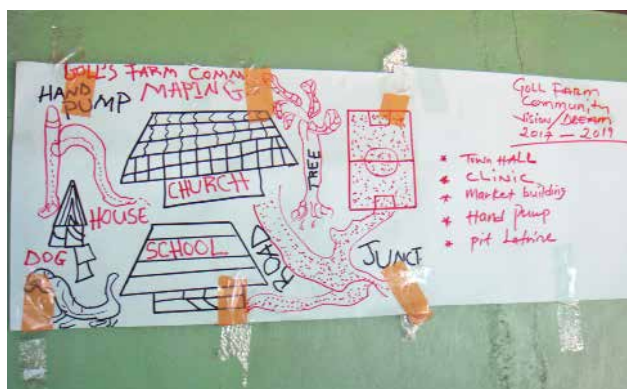 GOLL'S FARM COMM
MAPING
HAND
PUMP
TREE
CHURCH
HOUSE
DOG
SCHOOL
ROAD
JUNCT.
Goll Farm
Community
Vision/DREAM
2017 — 2019
* Town HALL
* CLINIC
* Market building
* Hand pump
* pit Latrine